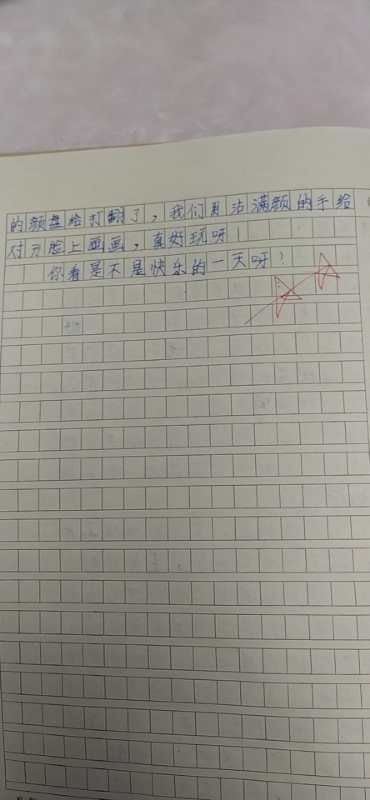 的颜盘给打翻了，我们用沾满颜的手给
对方脸上画画，真好玩呀！
你看是不是快乐的一天呀！